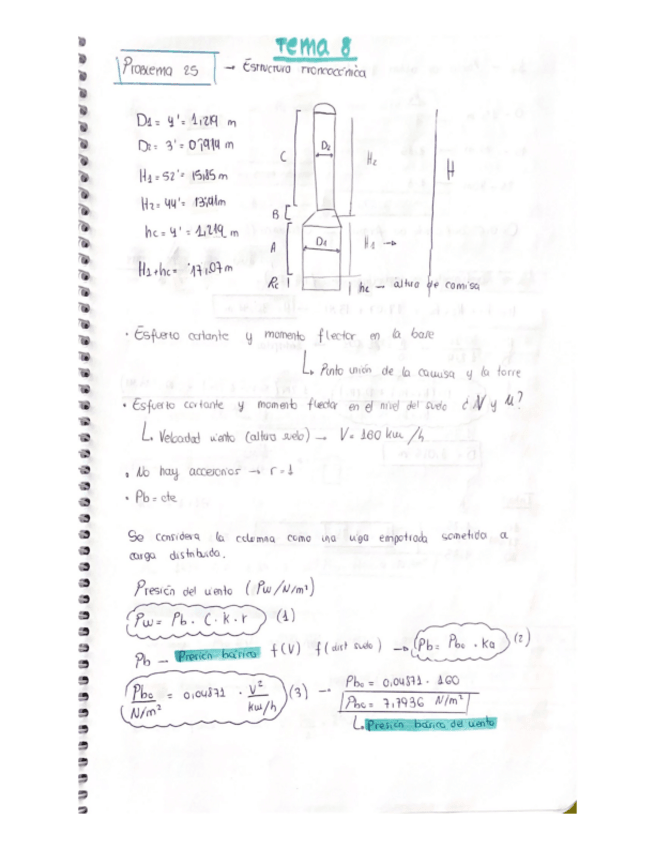 Tema 8
Problema 25 → Estructura troncocónica
D1 = 4' = 1,219 m
D2 = 3' = 0,914 m
H1 = 52' = 15,85 m
H2 = 44' = 13,41 m
hc = 4' = 1,219 m
H1+hc = 17,07 m
C
D2
H2
H
B
A
D1
H1 →
hc → altura de camisa
· Esfuerzo cortante y momento flector en la base
↳ Punto unión de la camisa y la torre
· Esfuerzo cortante y momento flector en el nivel del suelo ¿ N y M?
↳ Velocidad viento (altura suelo) → V = 160 km/h
· No hay accesorios → r = 1
· Pb = cte
Se considera la columna como una viga empotrada sometida a
carga distribuida.
Presión del viento (Pw/N/m²)
Pw = Pb · C · k · r (1)
Pb → Presión básica f(V) f(dist suelo) → Pb = Pbo · ka (2)
Pbo / N/m² = 0,04871 · V² / km/h (3) → Pbo = 0,04871 · 160
Pbo = 7,7936 N/m²
↳ Presión básica del viento